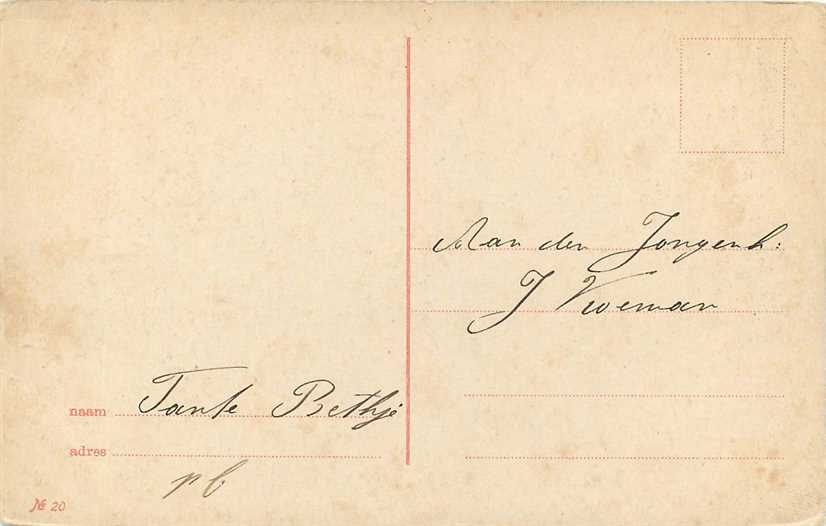 Aan den Jongenh:
J Veveman
naam Tante Bethje
adres
pb
№ 20